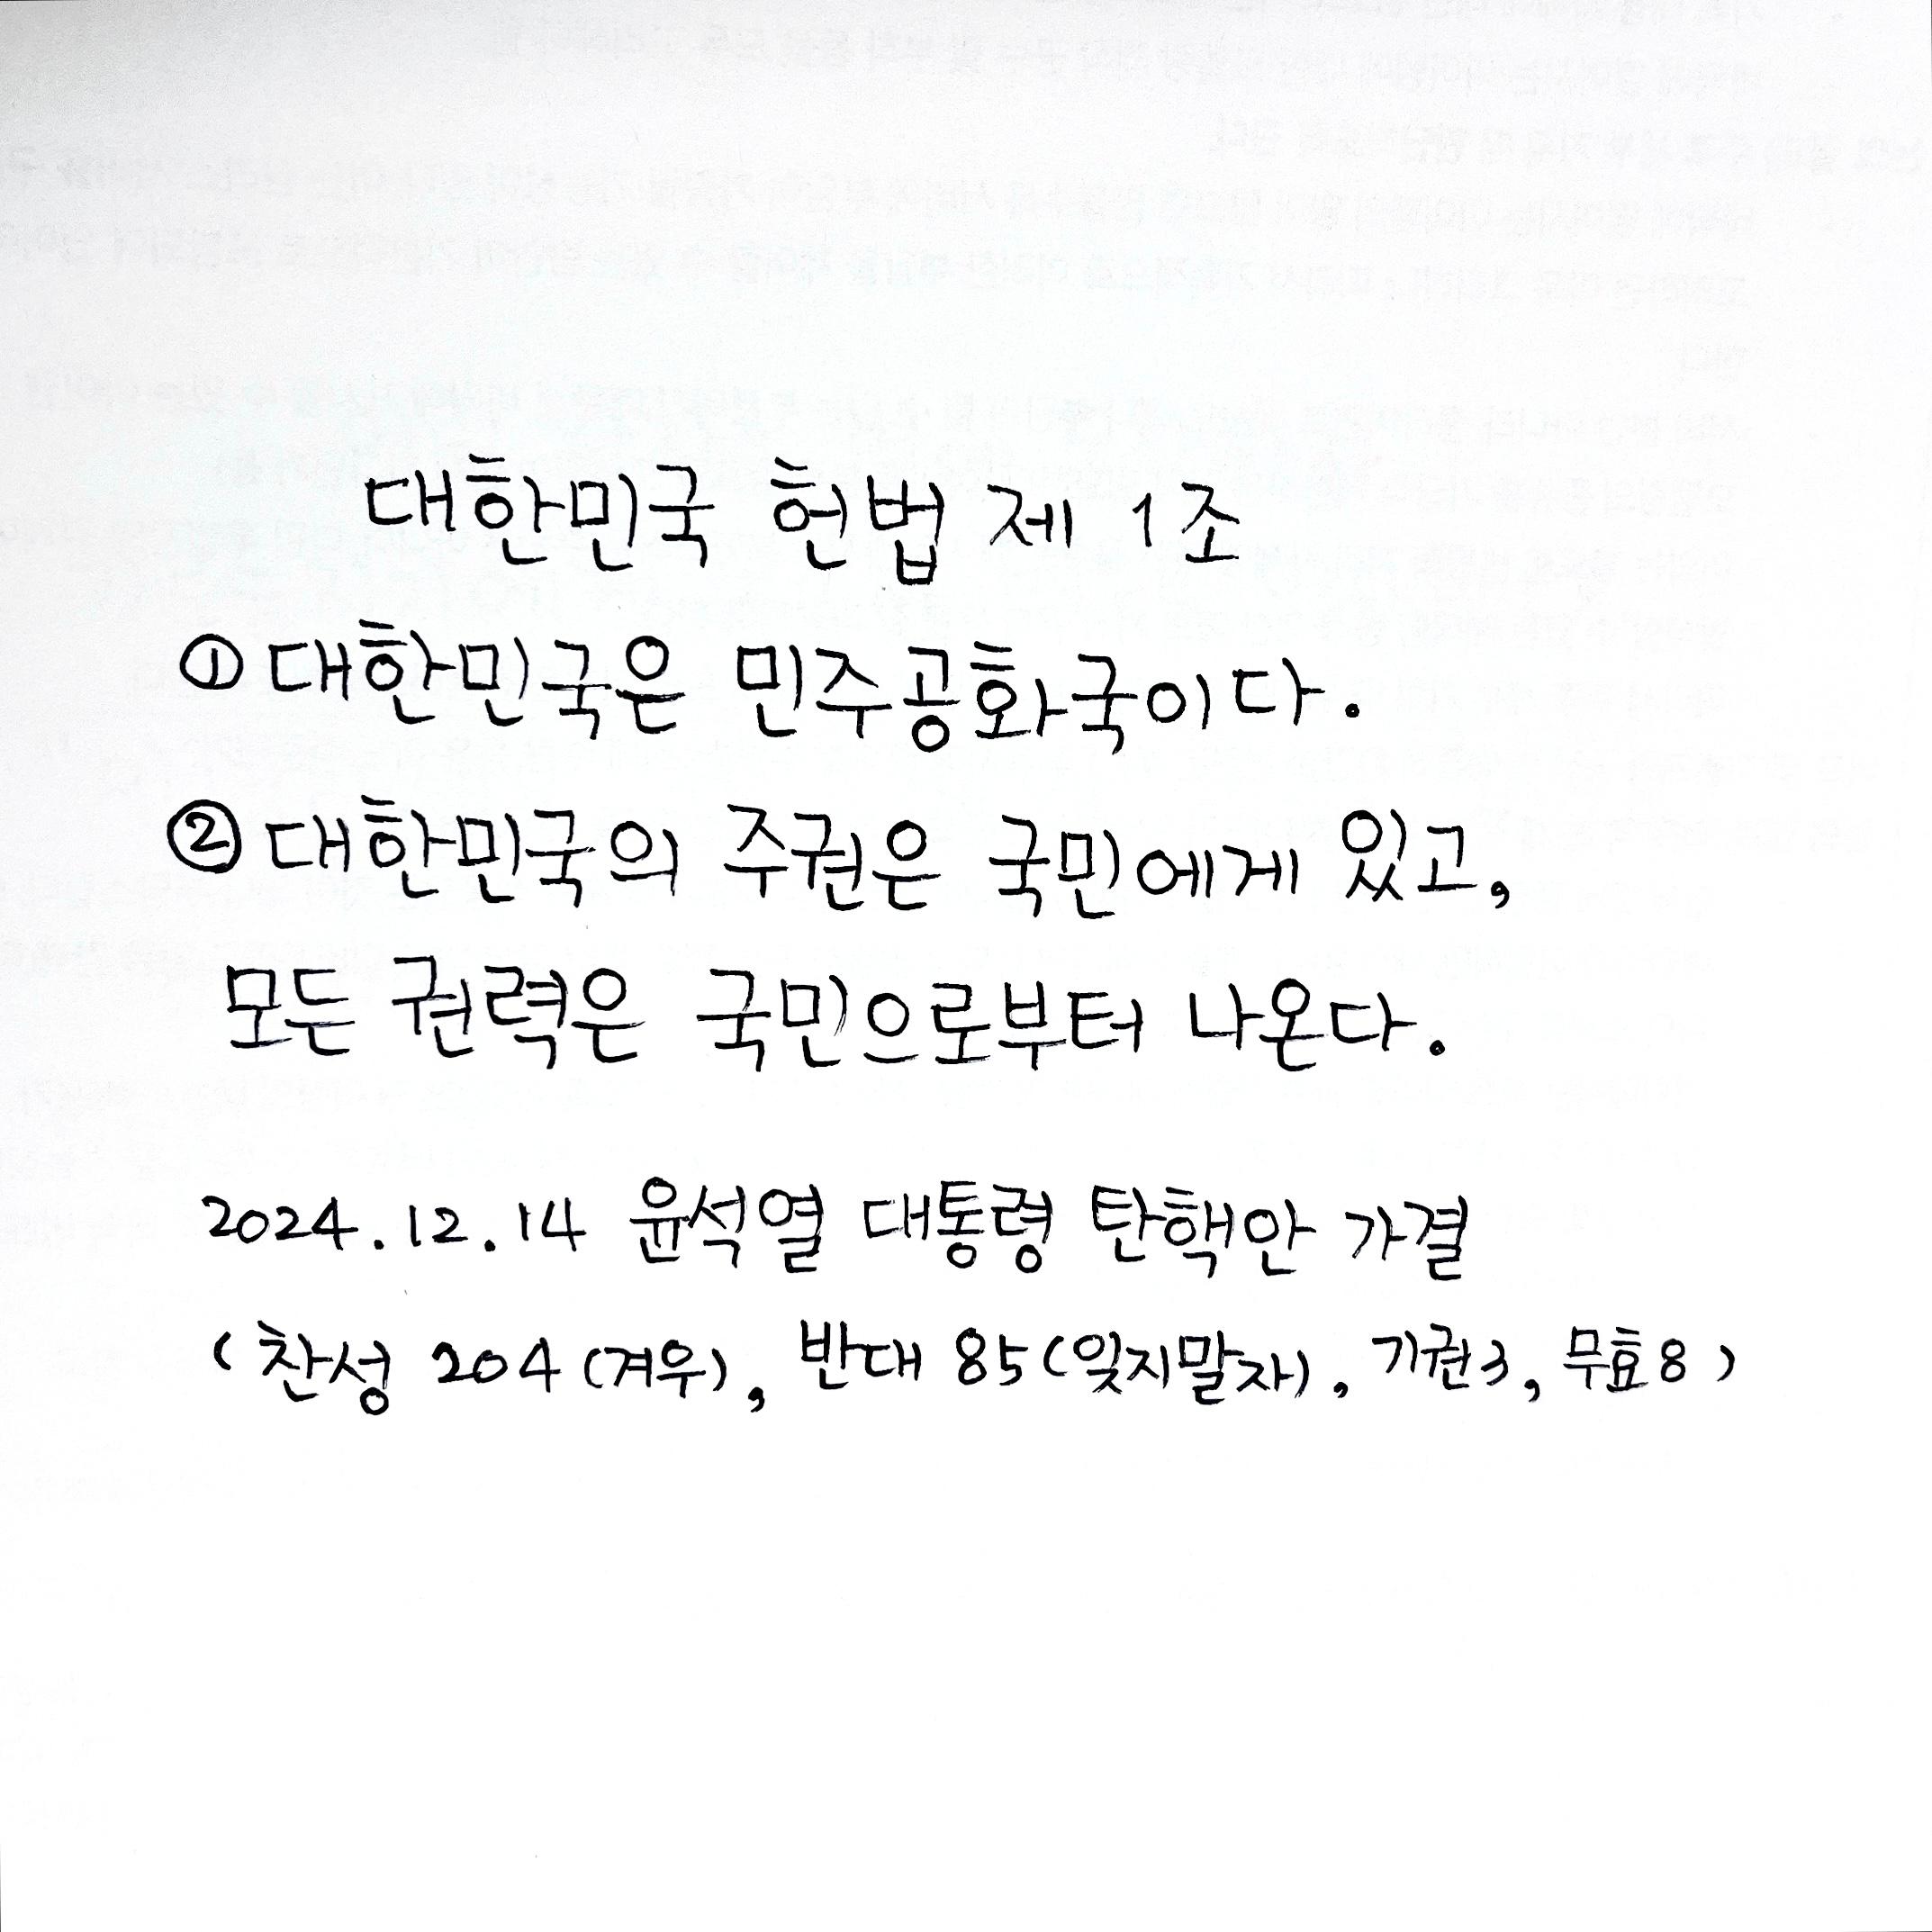 대한민국 헌법 제 1조
① 대한민국은 민주공화국이다.
② 대한민국의 주권은 국민에게 있고,
모든 권력은 국민으로부터 나온다.
2024.12.14 윤석열 대통령 탄핵안 가결
(찬성 204(겨우), 반대 85(잊지말자), 기권3, 무효8)